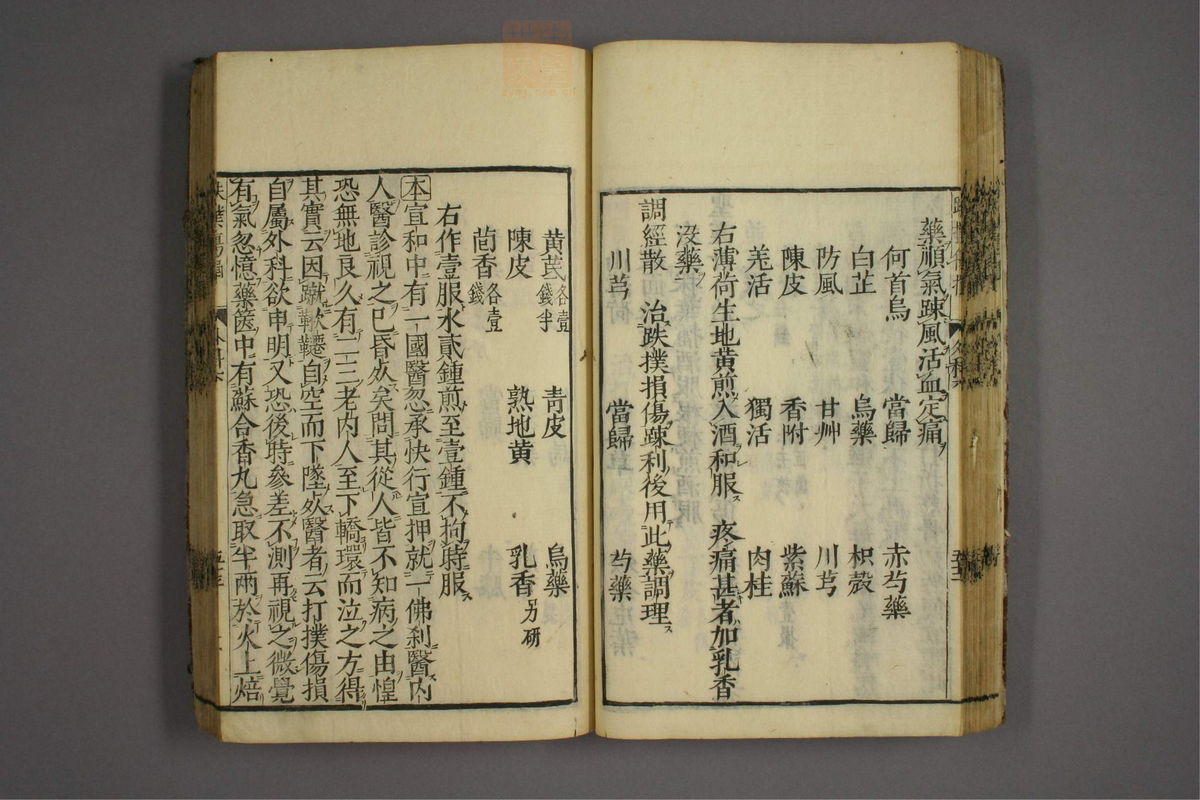 藥順氣踈風活血定痛
何首烏 當歸 赤芍藥
白芷 烏藥 枳殼
防風 甘艸 川芎
陳皮 香附 紫蘇
羌活 獨活 肉桂
右薄荷生地黄煎入酒和服 疼痛甚者加乳香
没藥
調經散 治跌撲損傷踈利後用此藥調理
川芎 當歸 芍藥
黄芪各壹錢半 青皮 烏藥
陳皮 熟地黄 乳香另研
茴香各壹錢
右作壹服水貳鍾煎至壹鍾不拘時服
本宣和中有一國醫忽承快行宣押就一佛刹醫内
人醫診視之已昏死矣問其從人皆不知病之由惶
恐無地良久有二三老内人至下轎環而泣之方得
其實云因蹴鞦韆自空而下墜死醫者云打撲傷損
自屬外科欲申明又恐後時參差不測再視之微覺
有氣忽憶藥篋中有蘇合香丸急取半兩於火上焙